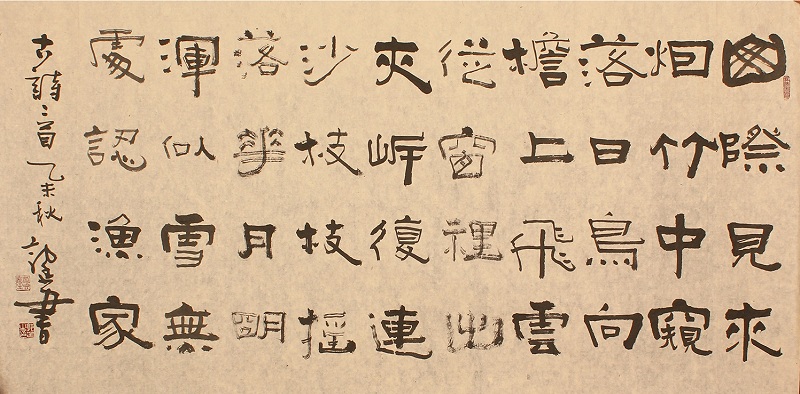 山際見來
烟竹中窺
落日鳥向
檐上飛雲
從窗裡出
夾岸復連
沙枝枝搖
落華月明
渾似雪無
處認漁家
古詩二首 乙未秋 書